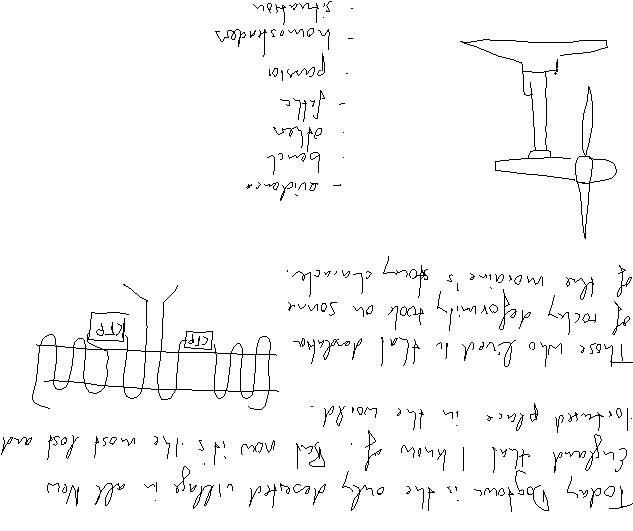 Today Dogtown is the only deserted village in all New
England that I know of. But now it's the most lost and
tortured place in the world.
Those who lived in that desolation
of rocky deformity took on some
of the moraine's stony character.
- evidence
· bench
· often
- homesteaders
· situation